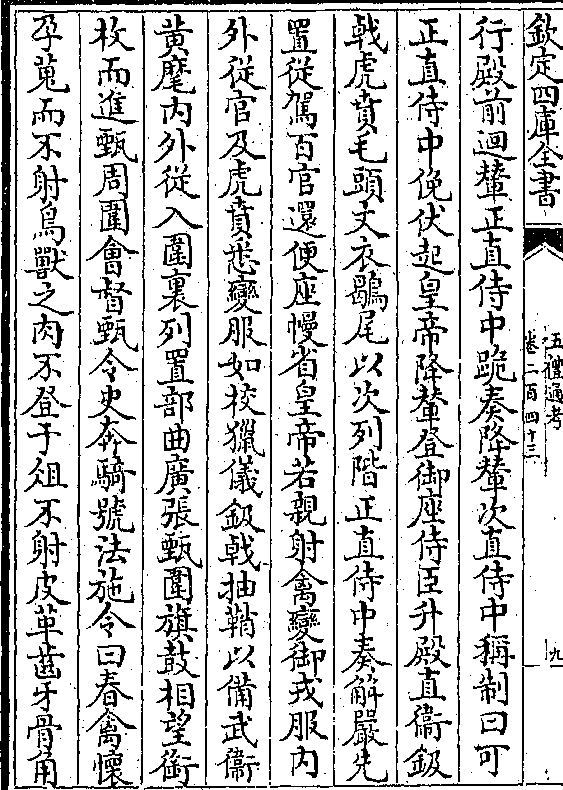 欽定四庫全書
五禮通考
卷二百四十三
九
行殿前迴輦正直侍中跪奏降輦次直侍中稱制曰可
正直侍中俛伏起皇帝降輦登御座侍臣升殿直衞鈒
戟虎賁毛頭文衣鶡尾以次列階正直侍中奏解嚴先
置從駕百官還便座幔省皇帝若親射禽變御戎服内
外從官及虎賁悉變服如校獵儀鈒戟抽鞘以備武衞
黄麾内外從入圍裏列置部曲廣張甄圍旗鼓相望銜
枚而進甄周圍會督甄令史奔騎號法施令曰春禽懷
孕蒐而不射鳥獸之肉不登于俎不射皮革齒牙骨角